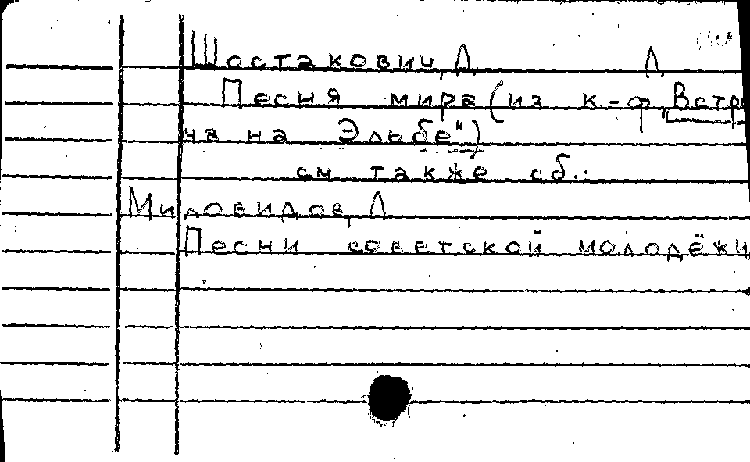 Шостакович, Д. Д.
Песня мира (из к-ф „Встре
ча на Эльбе")
см также сб.:
Миловидов, Л
Песни советской молодёжи